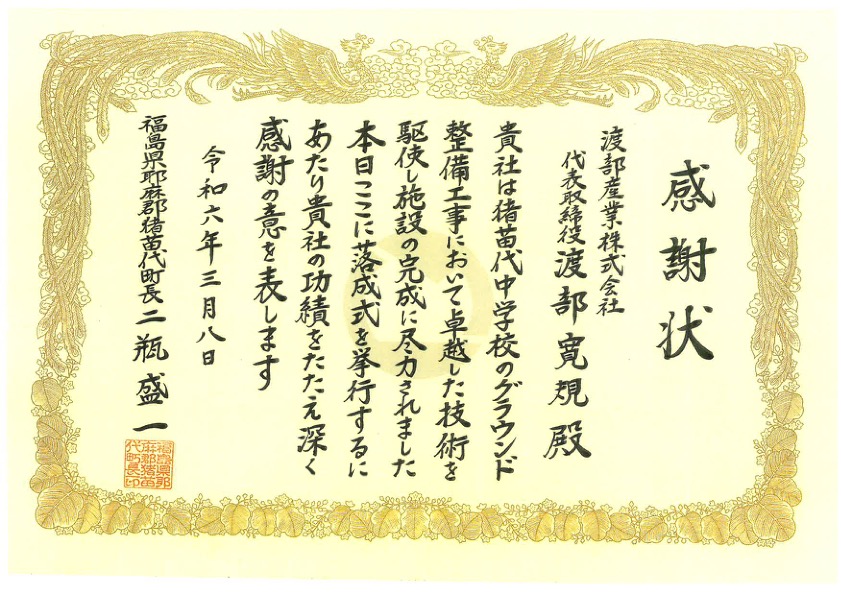 感謝状
渡部産業株式会社
代表取締役 渡部寛規 殿
貴社は猪苗代中学校のグラウンド
整備工事において卓越した技術を
駆使し施設の完成に尽力されました
本日ここに落成式を挙行するに
あたり貴社の功績をたたえ深く
感謝の意を表します
令和六年三月八日
福島県耶麻郡猪苗代町長 二瓶盛一
福島県耶
麻郡猪苗
代町長印